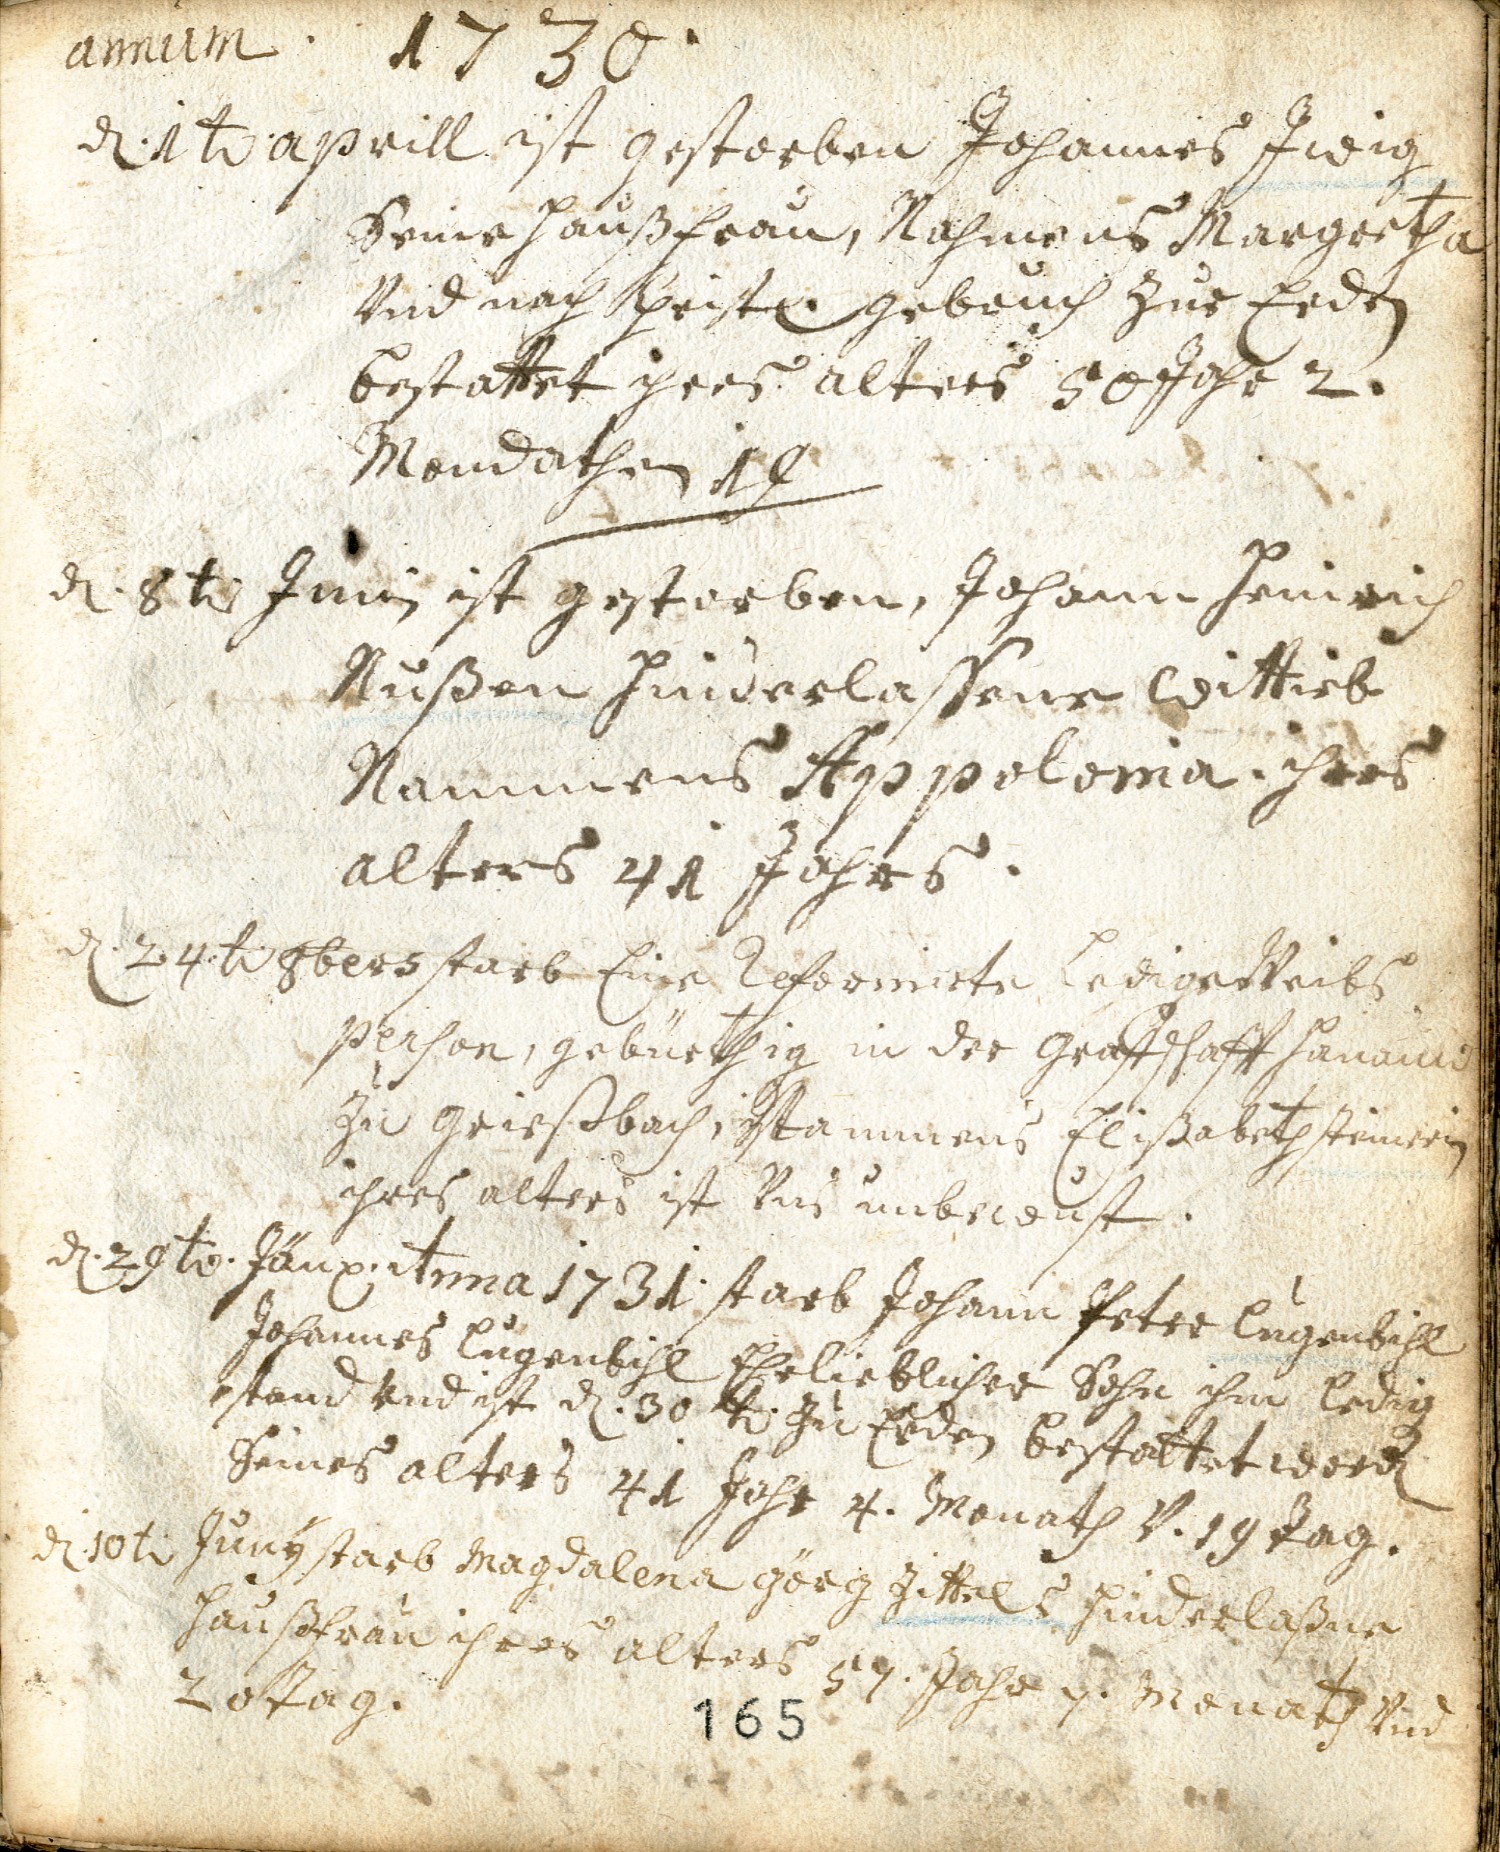 annum. 1730.
d. 1te aprill ist gestorben Johannes
Seine haußfrau, Nahmens Margretha
Und nach Christl. gebruch Zur Erden
bestattet ihres alters 50 Jahr 2.
Mondathen
d. 8te Junii ist gestorben, Johann Heinrich
Nußen hinderlassene Wittieb
Nammens Appolonia. ihres
alters 41 Jahrs.
d. 24te 8bers starb Eine Reformirte Ledige Weibs
Persohn, gebürthig in der Graffschafft Hanau
Zu Grießbach, Nammens Elißabeth Steinerin
ihres alters ist Uns unbewust.
d. 29te. Jän. Anna 1731. starb Johann Peter Lugenbihl
Johannes Lugenbihl Eheliebliher Sohn ihm ledig
stand und ist d. 30te. Zu Erden bestattet word
Seines alters 41 Jahr 4. Monath V. 19 Tag.
d. 10te Juny starb Magdalena Görg Zittels hinderlaßne
haußfrau ihres alters 57. Jahr 7. Monath Und
20 Tag.
165